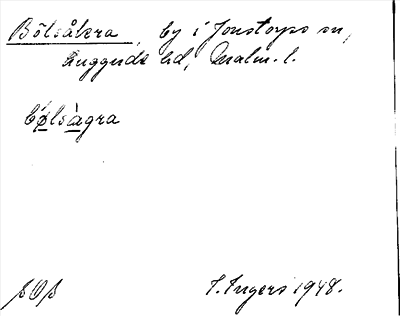 Bölsåkra, by i Jonstorps sn,
Luggude hd, Malm. l.
bø̀lsàgra
I. Ingers 1948.